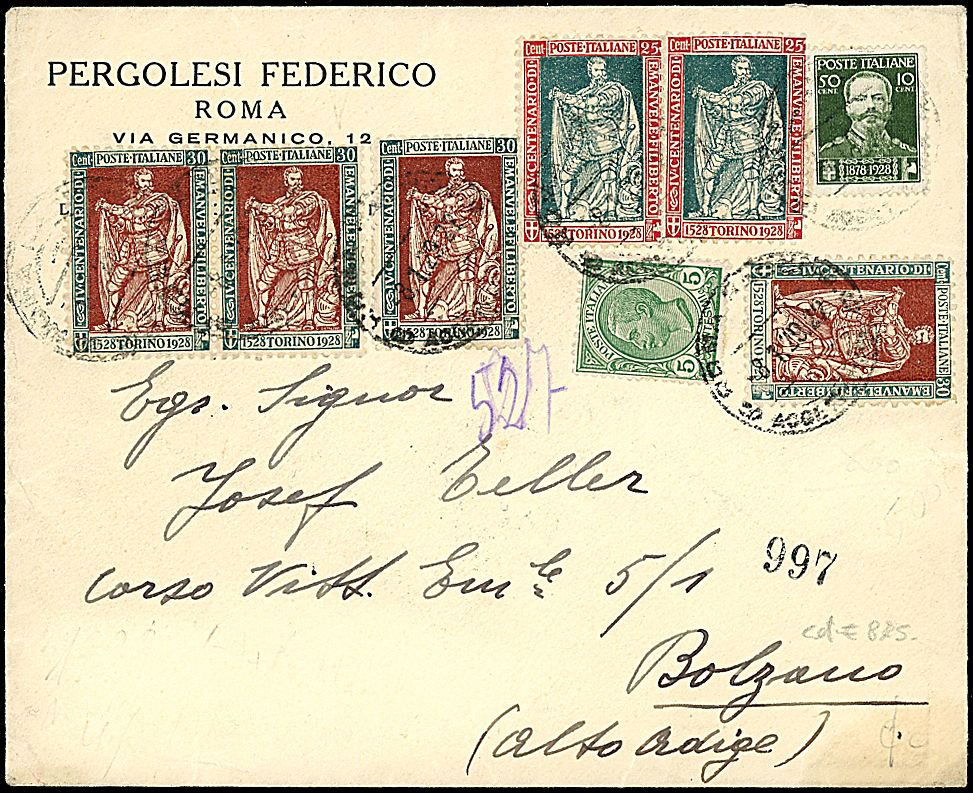 PERGOLESI FEDERICO
ROMA
VIA GERMANICO, 12
Cent. POSTE·ITALIANE 25
IV·CENTENARIO·DI
EMANVELE·FILIBERTO
1528 TORINO 1928
Cent. POSTE·ITALIANE 25
IV·CENTENARIO·DI
EMANVELE·FILIBERTO
1528 TORINO 1928
POSTE ITALIANE
50 CENT 10 CENT
1878 1928
Cent. POSTE·ITALIANE 30
IV·CENTENARIO·DI
EMANVELE·FILIBERTO
1528 TORINO 1928
Cent. POSTE·ITALIANE 30
IV·CENTENARIO·DI
EMANVELE·FILIBERTO
1528 TORINO 1928
Cent. POSTE·ITALIANE 30
IV·CENTENARIO·DI
EMANVELE·FILIBERTO
1528 TORINO 1928
POSTE ITALIANE
5 CENTESIMI 5
Cent. POSTE·ITALIANE 30
IV·CENTENARIO·DI
EMANVELE·FILIBERTO
1528 TORINO 1928
527
Egr. Signor
Josef Eeller
Corso Vitt. Em.le 5/1
997
cd € 825.
Bolzano
(Alto Adige)